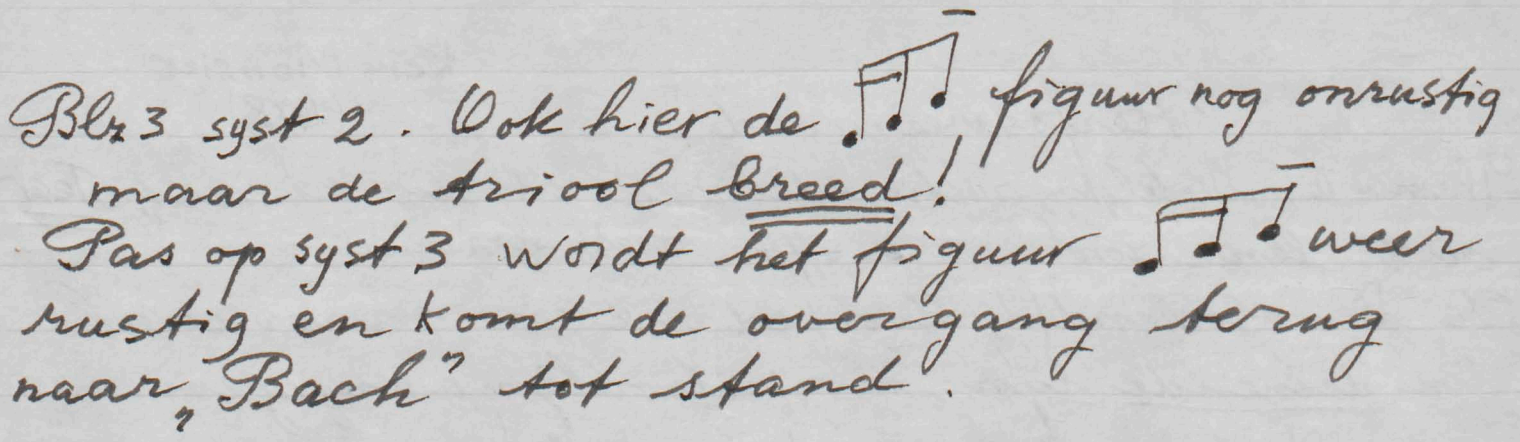 Blz 3 syst 2. Ook hier de figuur nog onrustig
maar de triool breed!
Pas op syst 3 wordt het figuur weer
rustig en komt de overgang terug
naar „Bach” tot stand.